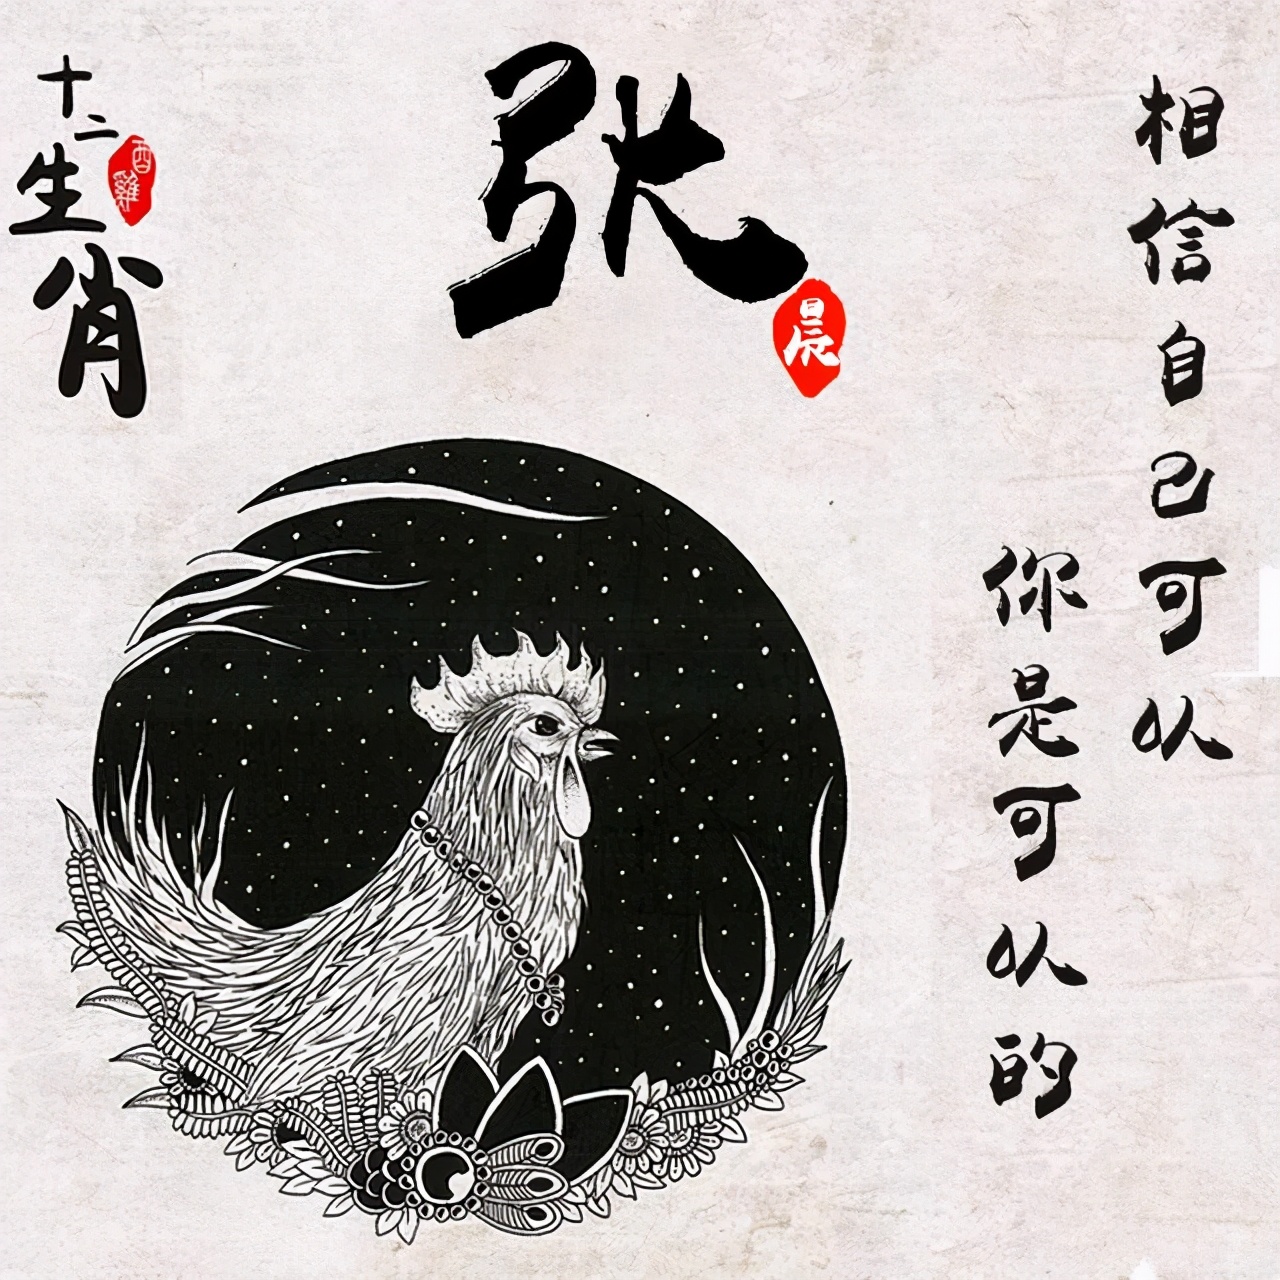 十二生肖
酉雞
张
晨
相信自己可以
你是可以的